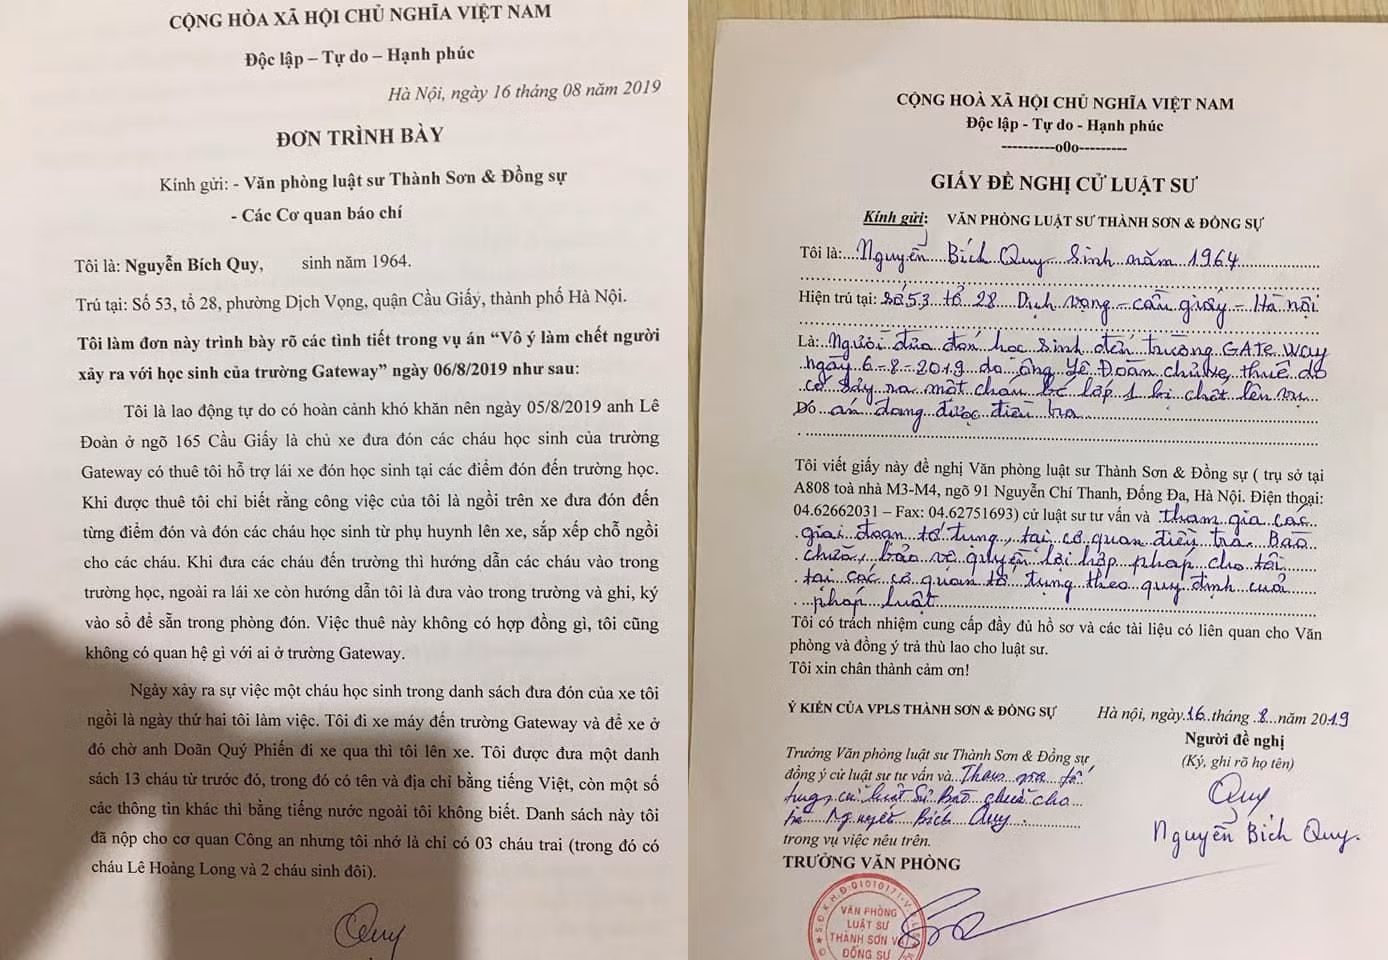 CỘNG HÒA XÃ HỘI CHỦ NGHĨA VIỆT NAM
Độc lập – Tự do – Hạnh phúc
Hà Nội, ngày 16 tháng 08 năm 2019
ĐƠN TRÌNH BÀY
Kính gửi: - Văn phòng luật sư Thành Sơn & Đồng sự
- Các Cơ quan báo chí
Tôi là: Nguyễn Bích Quy, sinh năm 1964.
Trú tại: Số 53, tổ 28, phường Dịch Vọng, quận Cầu Giấy, thành phố Hà Nội.
Tôi làm đơn này trình bày rõ các tình tiết trong vụ án “Vô ý làm chết người
xảy ra với học sinh của trường Gateway” ngày 06/8/2019 như sau:
Tôi là lao động tự do có hoàn cảnh khó khăn nên ngày 05/8/2019 anh Lê
Đoàn ở ngõ 165 Cầu Giấy là chủ xe đưa đón các cháu học sinh của trường
Gateway có thuê tôi hỗ trợ lái xe đón học sinh tại các điểm đón đến trường học.
Khi được thuê tôi chỉ biết rằng công việc của tôi là ngồi trên xe đưa đón đến
từng điểm đón và đón các cháu học sinh từ phụ huynh lên xe, sắp xếp chỗ ngồi
cho các cháu. Khi đưa các cháu đến trường thì hướng dẫn các cháu vào trong
trường học, ngoài ra lái xe còn hướng dẫn tôi là đưa vào trong trường và ghi, ký
vào sổ để sẵn trong phòng đón. Việc thuê này không có hợp đồng gì, tôi cũng
không có quan hệ gì với ai ở trường Gateway.
Ngày xảy ra sự việc một cháu học sinh trong danh sách đưa đón của xe tôi
ngồi là ngày thứ hai tôi làm việc. Tôi đi xe máy đến trường Gateway và để xe ở
đó chờ anh Doãn Quý Phiến đi xe qua thì tôi lên xe. Tôi được đưa một danh
sách 13 cháu từ trước đó, trong đó có tên và địa chỉ bằng tiếng Việt, còn một số
các thông tin khác thì bằng tiếng nước ngoài tôi không biết. Danh sách này tôi
đã nộp cho cơ quan Công an nhưng tôi nhớ là chỉ có 03 cháu trai (trong đó có
cháu Lê Hoàng Long và 2 cháu sinh đôi).
Quy
CỘNG HOÀ XÃ HỘI CHỦ NGHĨA VIỆT NAM
Độc lập - Tự do - Hạnh phúc
----------o0o---------
GIẤY ĐỀ NGHỊ CỬ LUẬT SƯ
Kính gửi: VĂN PHÒNG LUẬT SƯ THÀNH SƠN & ĐỒNG SỰ
Tôi là:...Nguyễn Bích Quy Sinh năm 1964
Hiện trú tại: số 53 tổ 28 Dịch vọng - cầu giấy - Hà nội
Là: Người đưa đón học sinh đến trường GATE Way
ngày 6-8-2019 do ông Lê Đoàn chủ xe, thuê do
có sảy ra một cháu bé lớp 1 bị chết lên vụ
Đó án đang được điều tra
Tôi viết giấy này đề nghị Văn phòng luật sư Thành Sơn & Đồng sự ( trụ sở tại
A808 toà nhà M3-M4, ngõ 91 Nguyễn Chí Thanh, Đống Đa, Hà Nội. Điện thoại:
04.62662031 – Fax: 04.62751693) cử luật sư tư vấn và tham gia các
giai đoạn tố tụng, tại cơ quan điều tra. Bào
chữa, bảo vệ quyền lợi hợp pháp cho tôi
tại các cơ quan tố tụng theo quy định của
pháp luật
Tôi có trách nhiệm cung cấp đầy đủ hồ sơ và các tài liệu có liên quan cho Văn
phòng và đồng ý trả thù lao cho luật sư.
Tôi xin chân thành cảm ơn!
Ý KIẾN CỦA VPLS THÀNH SƠN & ĐỒNG SỰ
Hà nội, ngày 16 tháng 8 năm 2019
Người đề nghị
(Ký, ghi rõ họ tên)
Quy
Nguyễn Bích Quy.
Trưởng Văn phòng luật sư Thành Sơn & Đồng sự
đồng ý cử luật sư tư vấn và Tham gia tố
tụng cử Luật Sư Bào chữa cho
bà Nguyễn Bích Quy
trong vụ việc nêu trên.
TRƯỞNG VĂN PHÒNG
VĂN PHÒNG
LUẬT SƯ
THÀNH SƠN VÀ
ĐỒNG SỰ